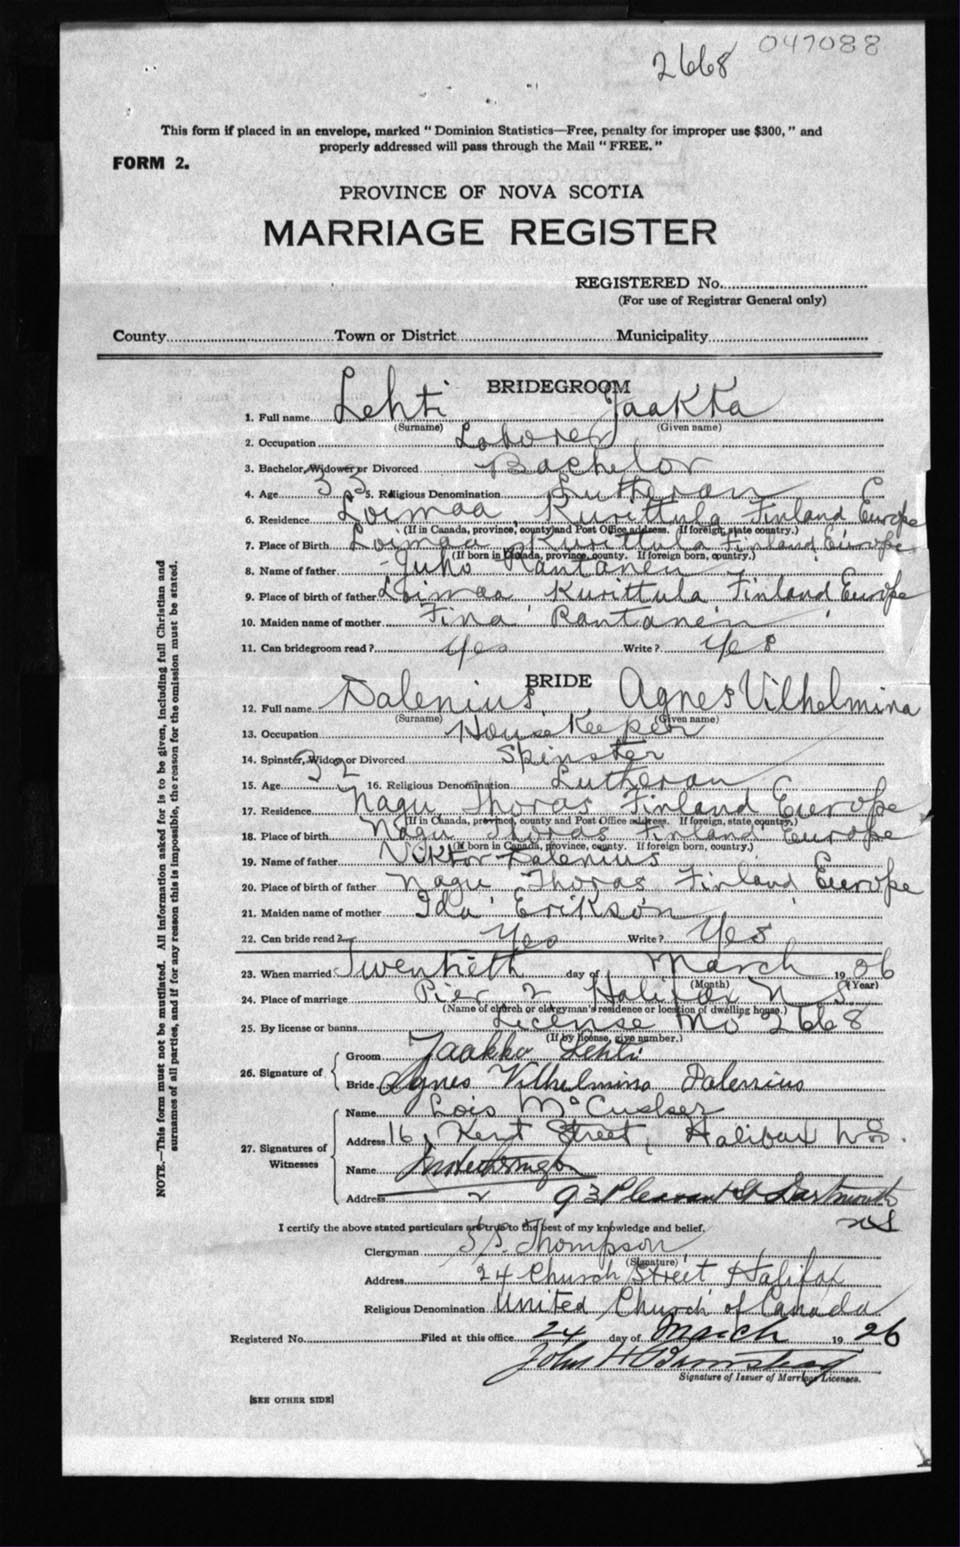 2668 047088
This form if placed in an envelope, marked "Dominion Statistics—Free, penalty for improper use $300," and
properly addressed will pass through the Mail "FREE."
FORM 2.
PROVINCE OF NOVA SCOTIA
MARRIAGE REGISTER
REGISTERED No.
(For use of Registrar General only)
County Town or District Municipality
BRIDEGROOM
1. Full name Lehti Jaakka
(Surname) (Given name)
2. Occupation Laborer
3. Bachelor, Widower or Divorced Bachelor
4. Age 33 5. Religious Denomination Lutheran
6. Residence Loimaa Kurittula Finland Europe
(If in Canada, province, county and Post Office address. If foreign, state country.)
7. Place of Birth Loimaa Kurittula Finland Europe
(If born in Canada, province, county. If foreign born, country.)
8. Name of father Juho Rantanen
9. Place of birth of father Loimaa Kurittula Finland Europe
10. Maiden name of mother Fina Rantanen
11. Can bridegroom read? Yes Write? Yes
BRIDE
12. Full name Dalenius Agnes Vilhelmina
(Surname) (Given name)
13. Occupation House Keeper
14. Spinster, Widow or Divorced Spinster
15. Age 32 16. Religious Denomination Lutheran
17. Residence Nagu Thoras Finland Europe
(If in Canada, province, county and Post Office address. If foreign, state country.)
18. Place of birth Nagu Thoras Finland Europe
(If born in Canada, province, county. If foreign born, country.)
19. Name of father Viktor Dalenius
20. Place of birth of father Nagu Thoras Finland Europe
21. Maiden name of mother Ida Erikson
22. Can bride read? Yes Write? Yes
23. When married Twentieth day of March 1926
(Month) (Year)
24. Place of marriage Pier 2 Halifax N.S.
(Name of church or clergyman's residence or location of dwelling house.)
25. By license or banns License No 2668
(If by license, give number.)
26. Signature of
Groom Jaakko Lehti
Bride Agnes Vilhelmina Dalenius
27. Signatures of Witnesses
Name Lois McCusker
Address 16 Kent Street, Halifax N.S.
Name
Address 93 Pleasant St Dartmouth
NS
I certify the above stated particulars are true to the best of my knowledge and belief.
Clergyman Thompson
(Signature)
Address 24 Church Street Halifax
Religious Denomination United Church of Canada
Registered No. Filed at this office 24 day of March 1926
John H
Signature of Issuer of Marriage Licenses.
[SEE OTHER SIDE]
NOTE.—This form must not be mutilated. All information asked for is to be given, including full Christian and
surnames of all parties, and if for any reason this is impossible, the reason for the omission must be stated.